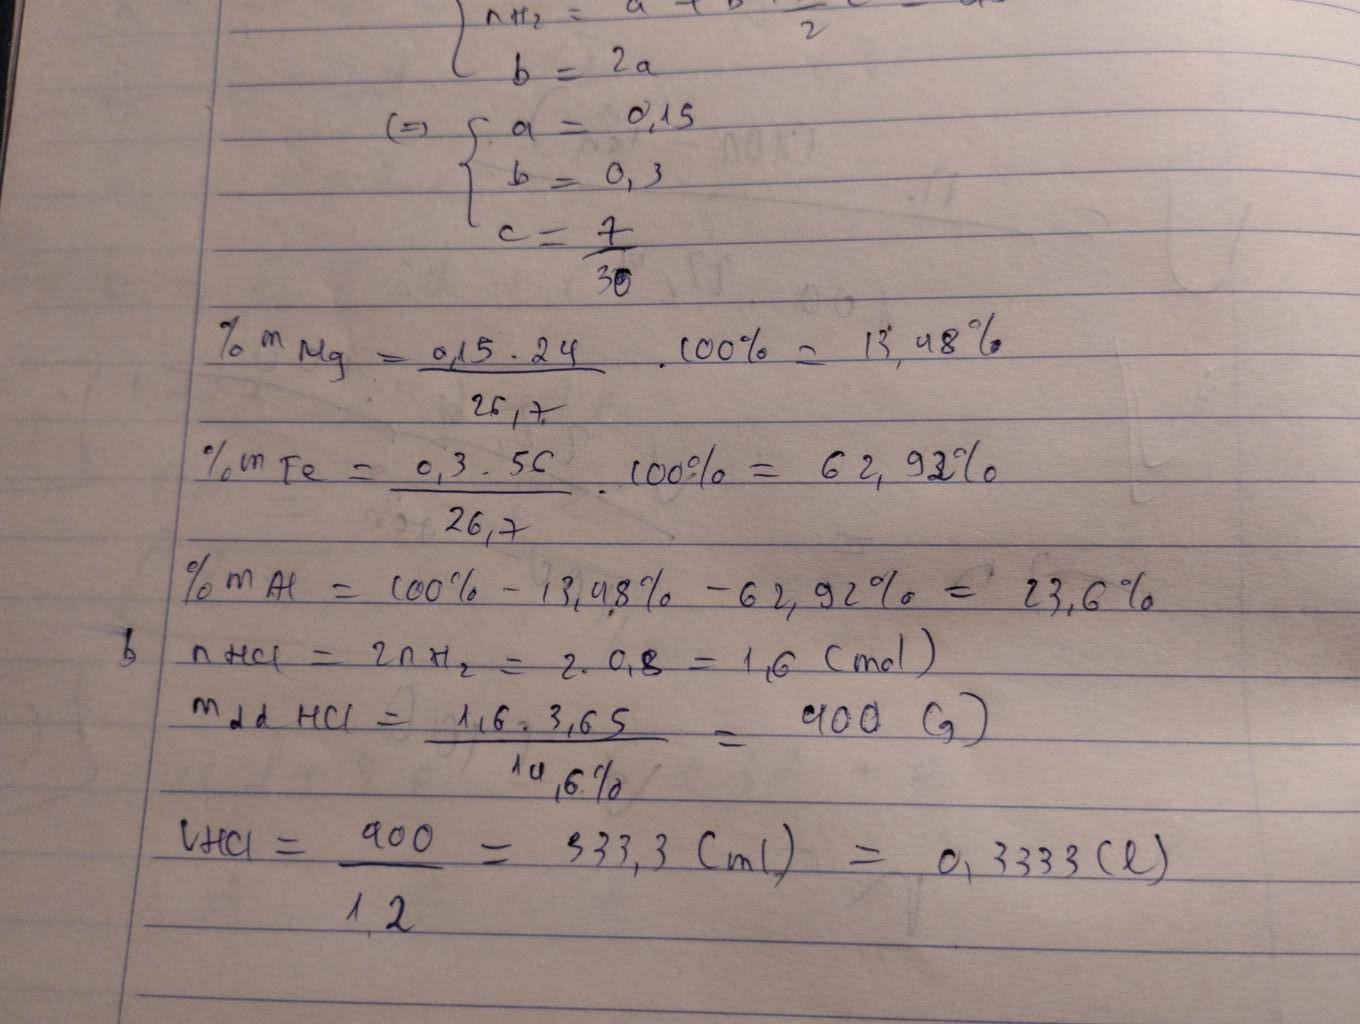 nH₂ = a + b + — c =
2
b = 2a
(=) { a = 0,15
b = 0,3
c = 7
30
% m Mg = 0,15 . 24 . 100% = 13,48%
26,7
% m Fe = 0,3 . 56 . 100% = 62,92%
26,7
% m Al = 100% - 13,48% - 62,92% = 23,6%
b nHCl = 2nH₂ = 2. 0,8 = 1,6 (mol)
mdd HCl = 1,6 . 3,65 = 400 (g)
14,6%
VHCl = 400 = 333,3 (ml) = 0,3333 (l)
1,2